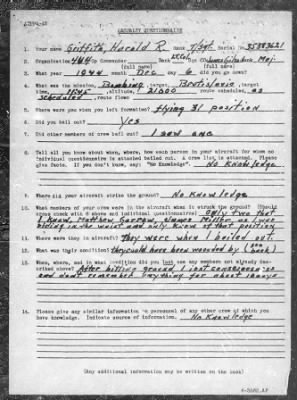 CASUALTY QUESTIONNAIRE
1. Your name Griffith, Harold R. Rank T/Sgt. Serial 35383621
2. Organization 464 Gp Commander Rank Col CO Maj.
(full name) (full name)
3. What year 1944 month Dec day 6 did you go down?
4. What was the mission, Bombing, target, Bratislavia, target
time, altitude, 21000 route scheduled, as
scheduled, route flown
5. Where were you when you left formation? flying 31 position
6. Did you bail out? Yes
7. Did other members of crew bail out? I saw one
8. Tell all you know about when, where, how each person in your aircraft for whom no
individual questionnaire is attached bailed out. A crew list is attached. Please
give facts. If you don't know, say: "No Knowledge". No Knowledge
9. Where did your aircraft strike the ground? No Knowledge
10. What members of your crew were in the aircraft when it struck the ground? (Should
cross check with 8 above and individual questionnaires) Only two that
I know, Matthew Elmer I was
riding in the waist and only know of that position
11. Where were they in aircraft? They were when I bailed out.
12. What was their condition? they could have been wounded by
13. When, where, and in what condition did you last see any members not already des-
cribed above? After hitting ground I lost consciousness
and don't remember anything for about
14. Please give any similar information on personnel of any other crew of which you
have knowledge. Indicate source of information. No Knowledge
(Any additional information may be written on the back)
6-3862,AF